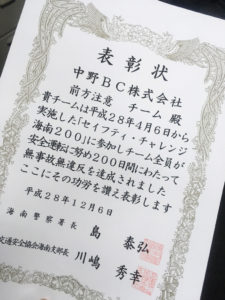 表彰状
中野BC株式会社
前方注意 チーム 殿
貴チームは平成28年4月6日から
実施した「セイフティ・チャレンジ
海南200」に参加しチーム全員が
安全運転に努め200日間にわたって
無事故無違反を達成されました
ここにその功労を讃え表彰します
平成28年12月6日
海南警察署長 島 泰弘
交通安全協会海南支部長 川嶋 秀幸